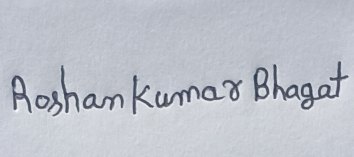 Roshan Kumar Bhagat